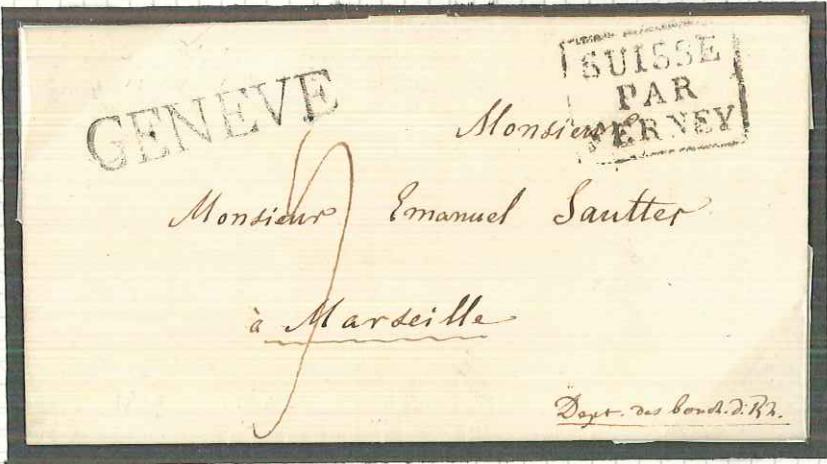 GENÈVE
SUISSE
PAR
FERNEY
Monsieur
Monsieur Emanuel Sautter
à Marseille
9
Dept. des bouch. d. Rh.